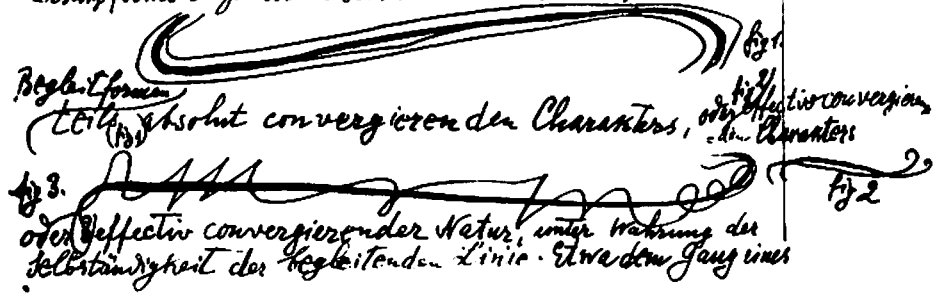 fig 1.
Begleitformen
teils (fig 1) absolut convergierenden Charakters, oder fig 2) effectiv convergieren-
den Charakters
fig 3.
fig 2
oder effectiv convergierender Natur, unter Wahrung der
Selbständigkeit der begleitenden Linie. Etwa dem Gang eines